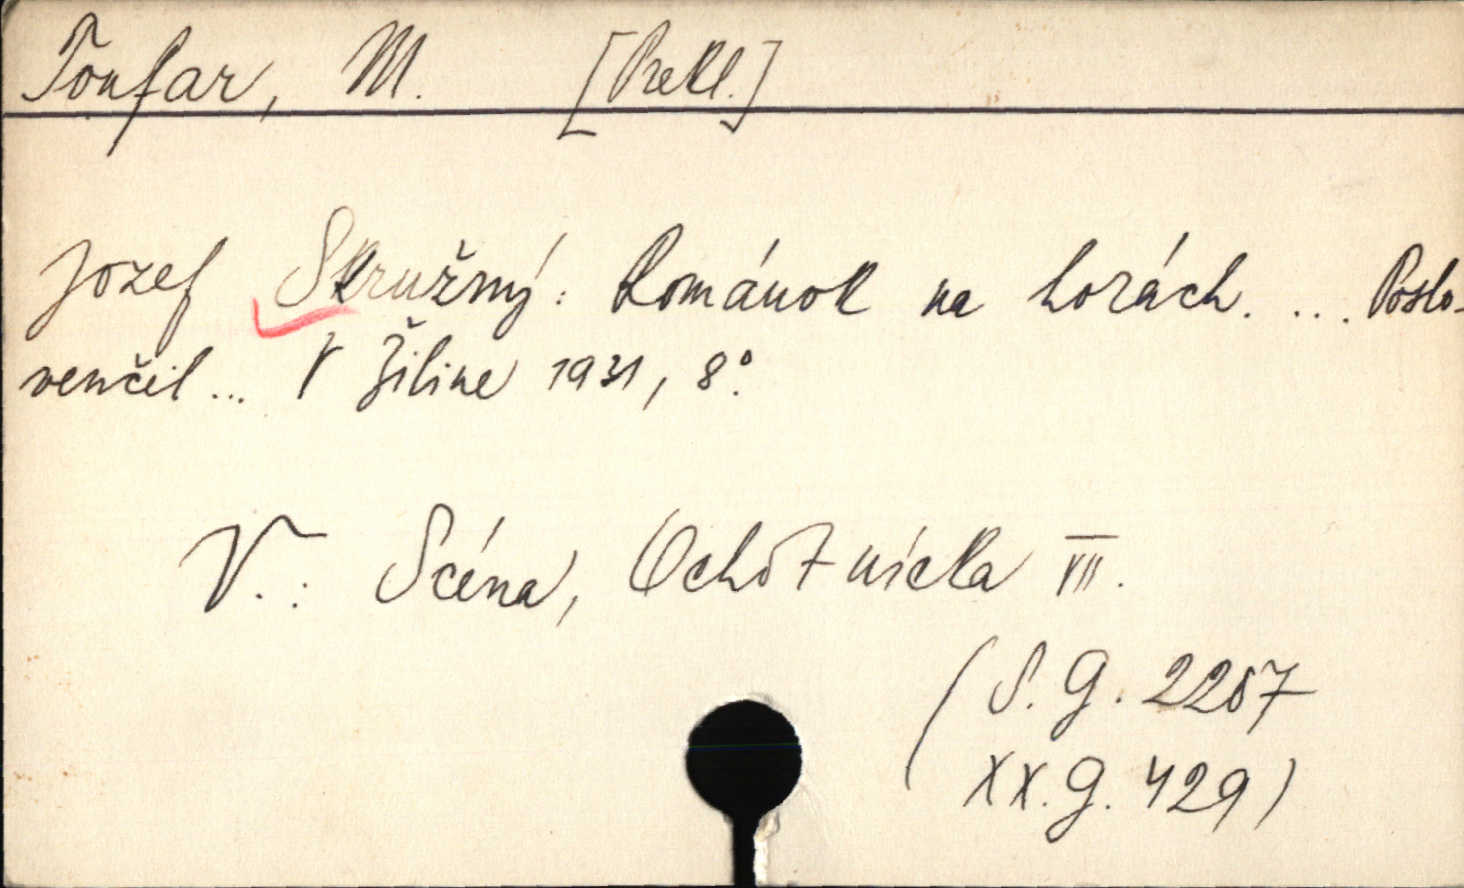 Toufar, M. [Prekl.]
Jozef Skružný: Románok na horách. ... Poslo-
venčil ... V Žiline 1931, 8°.
V.: Scéna, Ochotnícka VII.
(S. G. 2257
XX. G. 429)